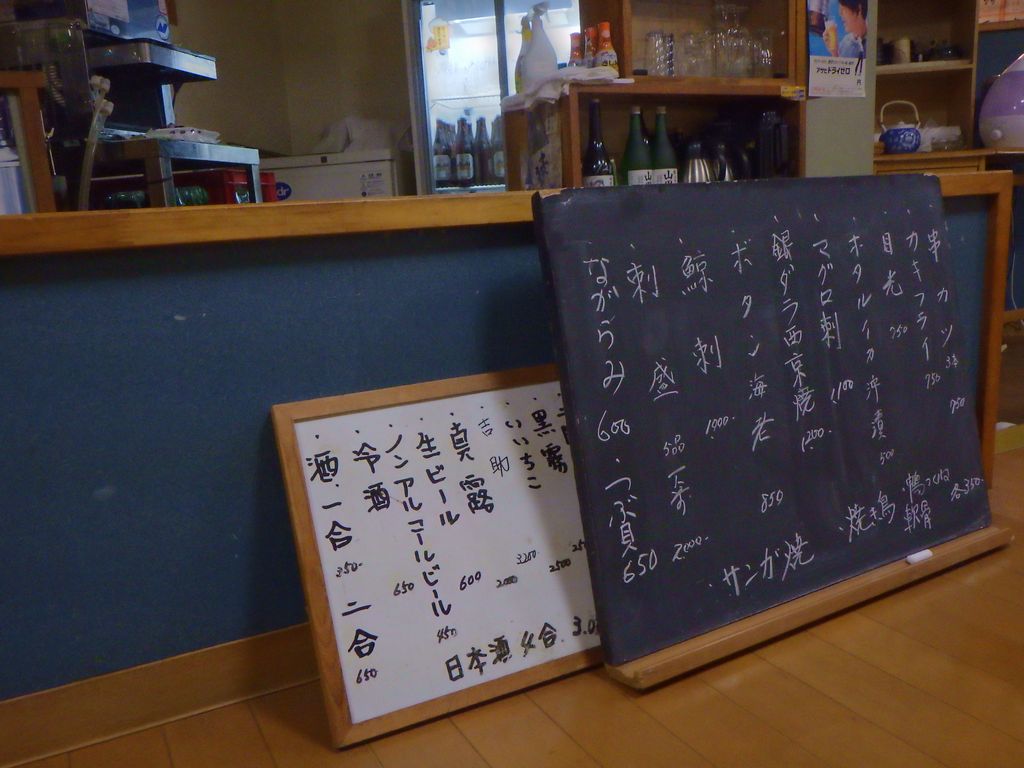 串カツ 3本 750
カキフライ 750
目光 750
ホタルイカ沖漬 500
マグロ刺 1100
銀ダラ西京焼 1200-
ボタン海老 850
鯨刺 1000-
刺盛 5品
2000-
ながらみ 600
つぶ貝 650
焼き鳥
つくね
軟骨
各350-
サンガ焼
黒霧 2500
いいちこ
吉助
3200-
2000
真露
生ビール 600
ノンアルコールビール 450
冷酒 650
酒 一合 350-
二合 650
日本酒 4合
アサヒドライゼロ